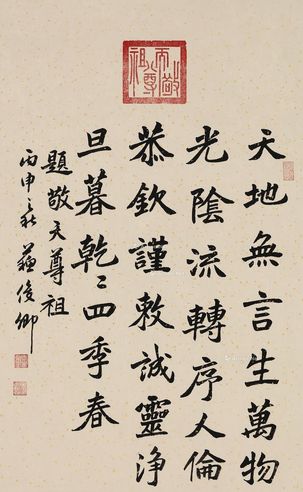 敬天尊祖
天地無言生萬物
光陰流轉序人倫
恭欽謹敕誠靈淨
旦暮乾乾四季春
題敬天尊祖
丙申之秋 蘇俊卿